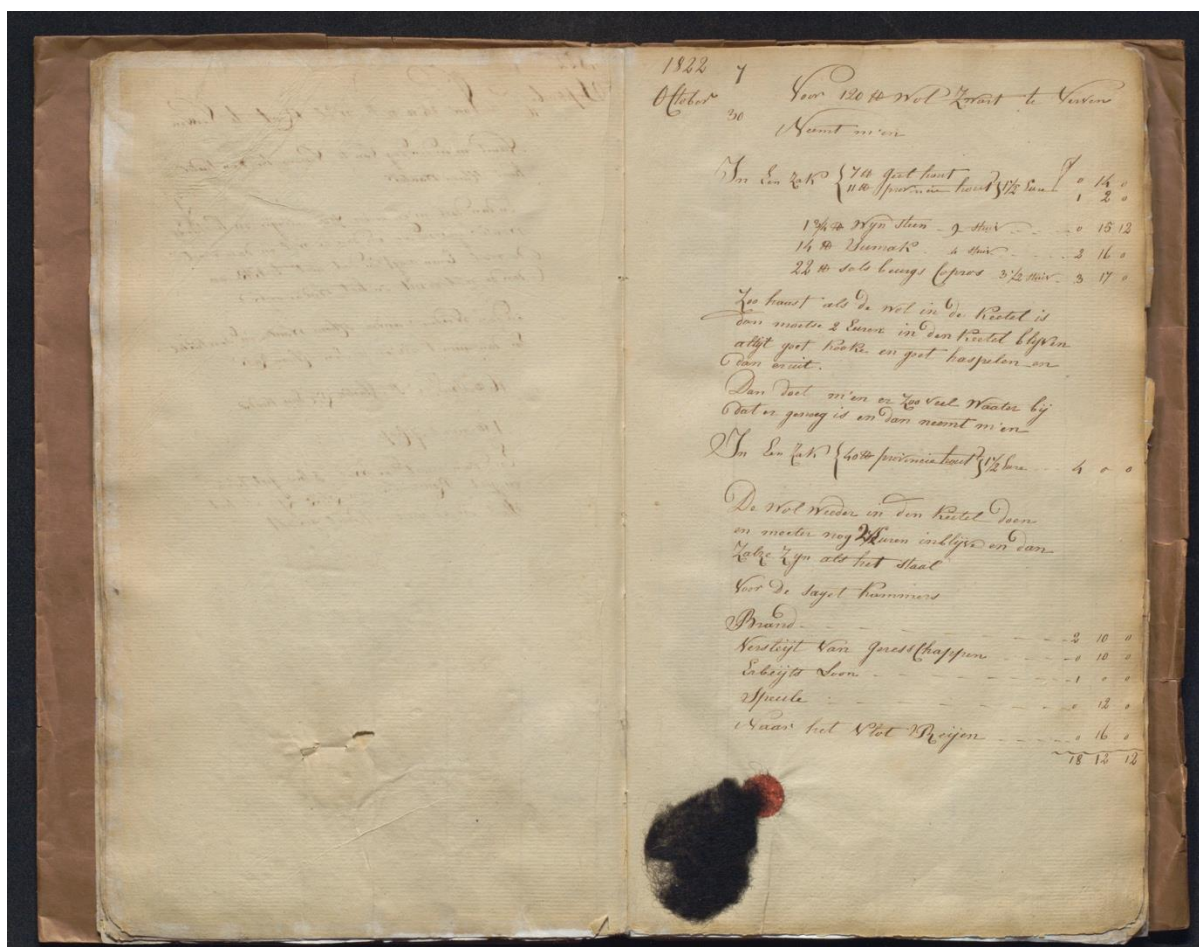 1822 7
October 30
Voor 120 lb Wol Zwart te Verven
Neemt m'en
In Een Zak { 7 lb geel hout } 1 1/2 Eure 0 14 0
11 lb provincie hout 1 2 0
1 3/4 lb Wyn steen - 9 stuiv - 0 15 12
14 lb Sumak - 4 stuiv - 2 16 0
22 lb sols beurgs Copros 3 1/2 stuiv - 3 17 0
Zoo haast als de Wol in de Keetel is
dan moetse 2 Euren in den Keetel blyven
altyt goet kooke en goet haspelen en
dan eruit.
Dan doet m'en er Zoo veel Waater bij
dat er genoeg is en dan neemt m'en
In Een Zak { 40 lb provincie hout } 1 1/2 Eure - 4 0 0
De Wol Weeder in den Keetel doen
en moeter nog Euren inblijve en dan
Zalze Zyn als het staal
Voor De sayet kammers
Brand - 2 10 0
Versleyt Van gereetschappen - 0 10 0
Erbeyts Loon - 1 0 0
Speule - 0 12 0
Naar het Vlot Reijen - 0 16 0
18 12 12